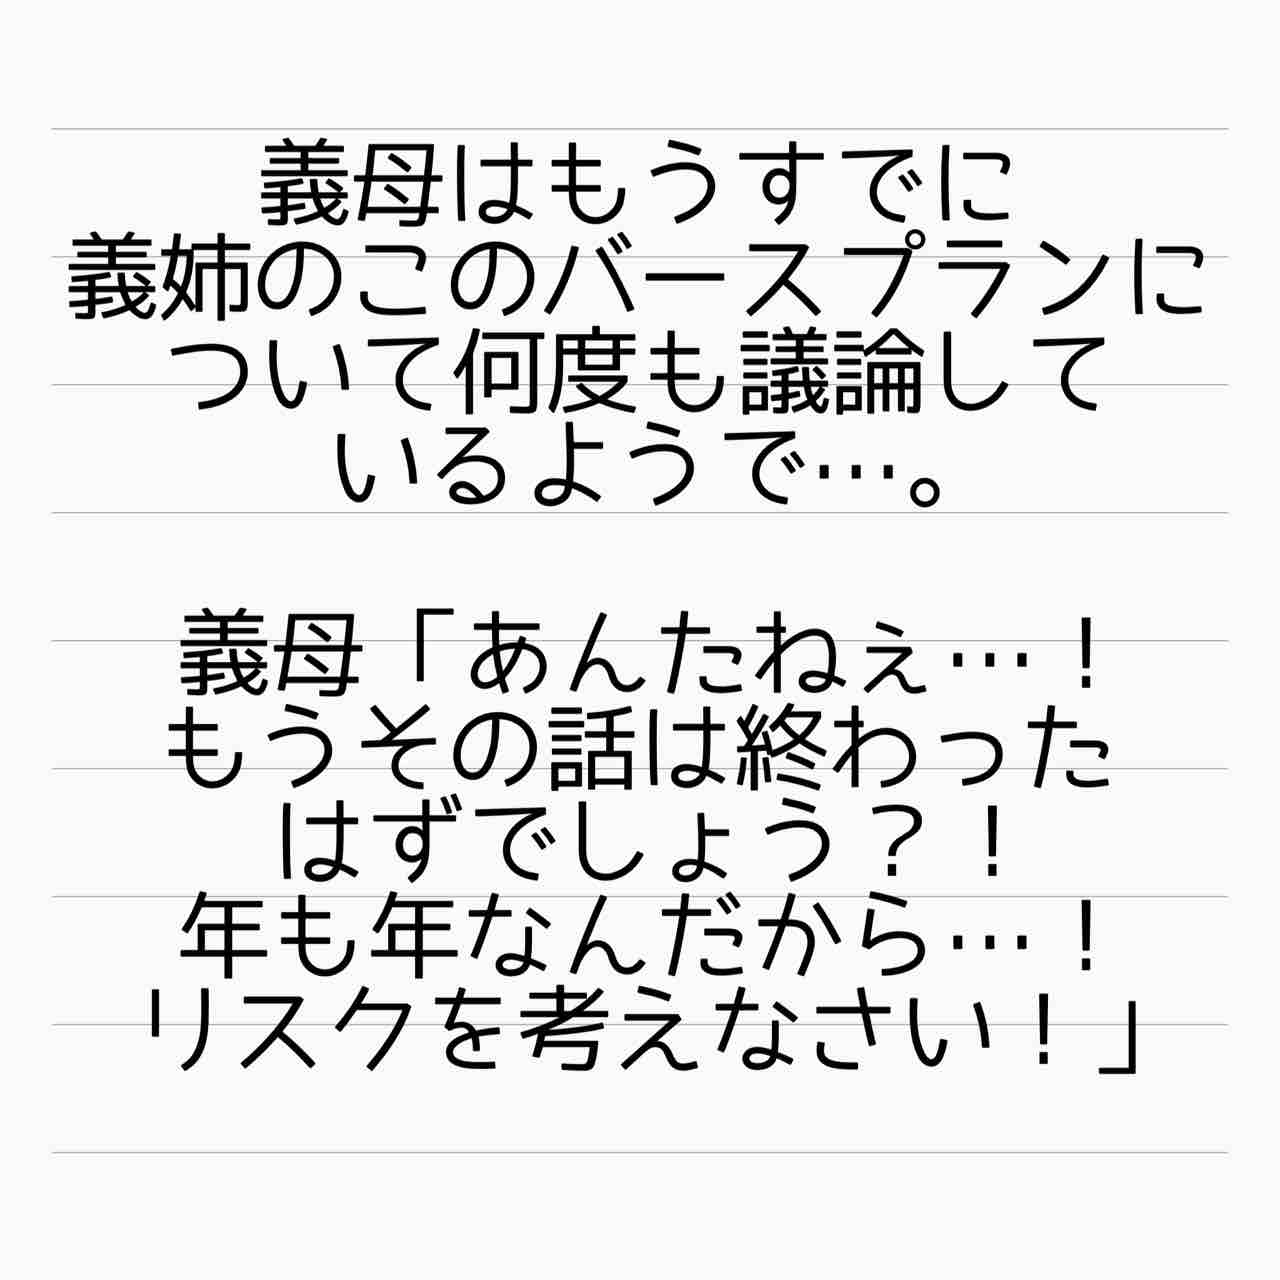 義母はもうすでに
義姉のこのバースプランに
ついて何度も議論して
いるようで…。
義母「あんたねぇ…！
もうその話は終わった
はずでしょう？！
年も年なんだから…！
リスクを考えなさい！」